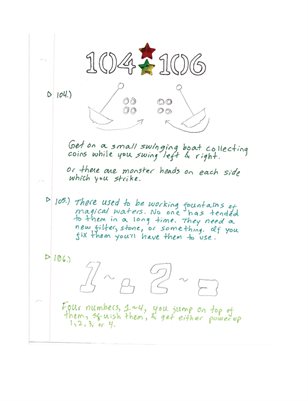 104 106
104.)
Get on a small swinging boat collecting
coins while you swing left & right.
Or there are monster heads on each side
which you strike.
105.) There used to be working fountains of
magical waters. No one has tended
to them in a long time. They need
a new filter, stone, or something. If you
fix them you'll have them to use.
106.)
1~ 2~
Four numbers, 1~4, you jump on top of
them, squish them, & get either powerup
1, 2, 3, or 4.